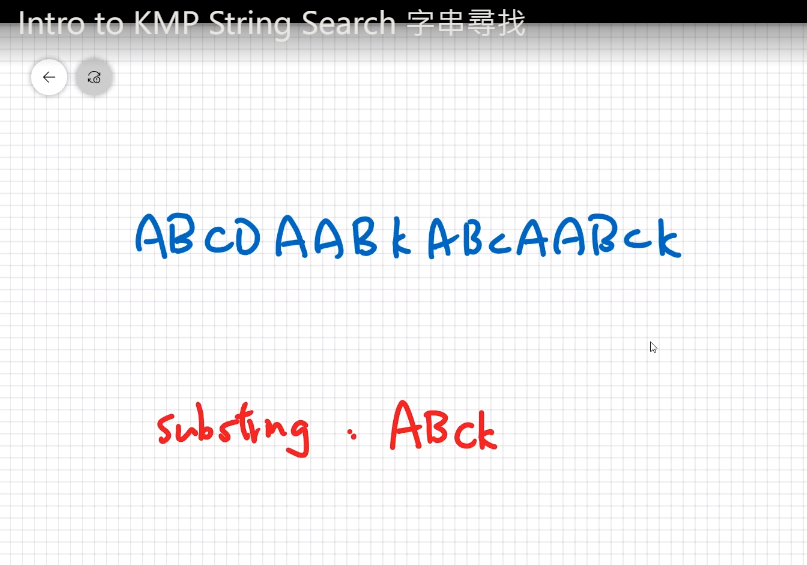 Intro to KMP String Search 字串尋找
ABCDAABkABcAABck
substring : ABck